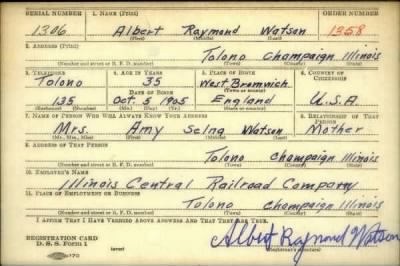 SERIAL NUMBER 1. NAME (Print) ORDER NUMBER
1306 Albert Raymond Watson 1358
(First) (Middle) (Last)
2. ADDRESS (Print)
Tolono Champaign Illinois
(Number and street or R. F. D. number) (Town) (County) (State)
3. TELEPHONE 4. AGE IN YEARS 5. PLACE OF BIRTH 6. COUNTRY OF CITIZENSHIP
Tolono 35 West Bromwich
DATE OF BIRTH (Town or county)
135 Oct. 5 1905 England U.S.A.
(Exchange) (Number) (Mo.) (Day) (Yr.) (State or country)
7. NAME OF PERSON WHO WILL ALWAYS KNOW YOUR ADDRESS 8. RELATIONSHIP OF THAT PERSON
Mrs. Amy Selna Watson Mother
(Mr., Mrs., Miss) (First) (Middle) (Last)
9. ADDRESS OF THAT PERSON
Tolono Champaign Illinois
(Number and street or R. F. D. number) (Town) (County) (State)
10. EMPLOYER'S NAME
Illinois Central Railroad Company
11. PLACE OF EMPLOYMENT OR BUSINESS
Tolono Champaign Illinois
(Number and street or R. F. D. number) (Town) (County) (State)
I AFFIRM THAT I HAVE VERIFIED ABOVE ANSWERS AND THAT THEY ARE TRUE.
REGISTRATION CARD
D. S. S. Form 1 (over) Albert Raymond Watson
(Registrant's signature)